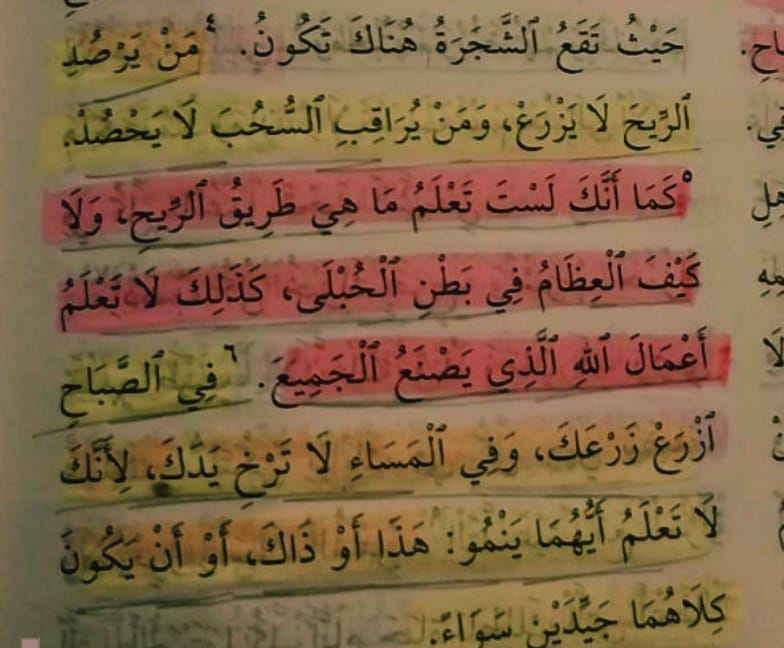 حَيْثُ تَقَعُ ٱلشَّجَرَةُ هُنَاكَ تَكُونُ. ٤ مَنْ يَرْصُدِ
ٱلرِّيحَ لَا يَزْرَعْ، وَمَنْ يُرَاقِبِ ٱلسُّحُبَ لَا يَحْصُدْ.
٥ كَمَا أَنَّكَ لَسْتَ تَعْلَمُ مَا هِيَ طَرِيقُ ٱلرِّيحِ، وَلَا
كَيْفَ ٱلْعِظَامُ فِي بَطْنِ ٱلْحُبْلَى، كَذَلِكَ لَا تَعْلَمُ
أَعْمَالَ ٱللهِ ٱلَّذِي يَصْنَعُ ٱلْجَمِيعَ. ٦ فِي ٱلصَّبَاحِ
ٱزْرَعْ زَرْعَكَ، وَفِي ٱلْمَسَاءِ لَا تَرْخِ يَدَكَ، لِأَنَّكَ
لَا تَعْلَمُ أَيُّهُمَا يَنْمُو: هَذَا أَوْ ذَاكَ، أَوْ أَنْ يَكُونَ
كِلَاهُمَا جَيِّدَيْنِ سَوَاءً.